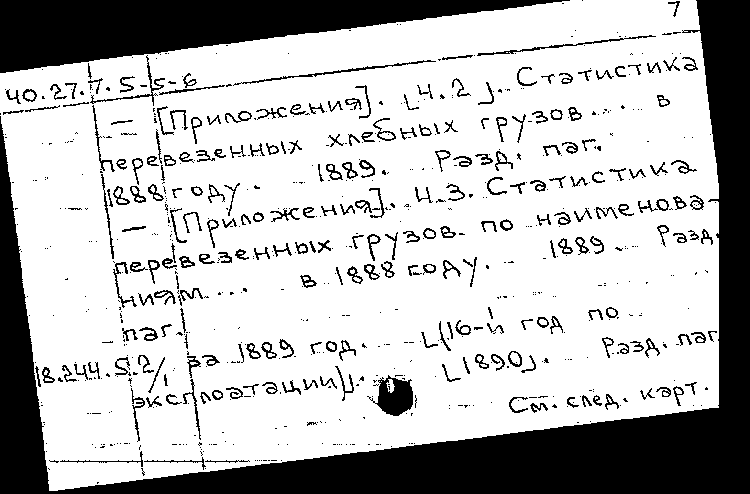 7
40.27.7.5-5-6
— [Приложения]. [Ч.2]. Статистика
перевезенных хлебных грузов... в
1888 году. 1889. Разд. паг.
— [Приложения]. Ч.3. Статистика
перевезенных грузов по наименова-
ниям... в 1888 году. - 1889. Разд.
паг.
18.244.5.2/1 за 1889 год. [(16-й год по
эксплоатации)]. [1890]. Разд. паг.
См. след. карт.